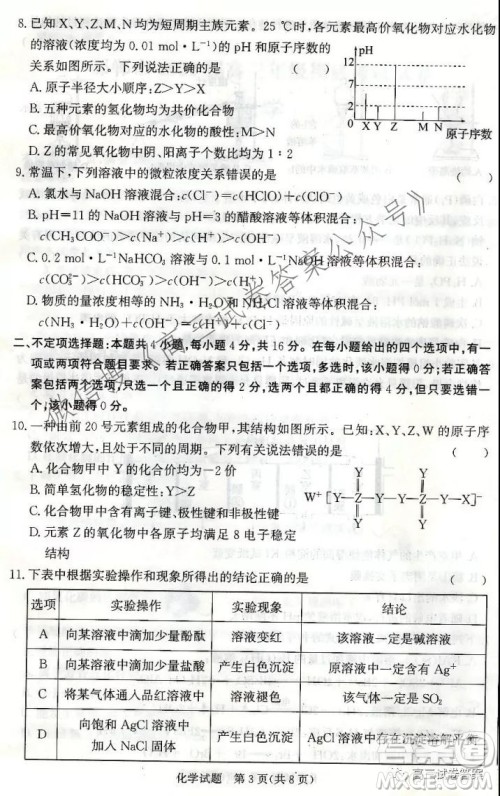 8. 已知 X、Y、Z、M、N 均为短周期主族元素。25 ℃时,各元素最高价氧化物对应水化物
的溶液(浓度均为 0.01 mol·L⁻¹)的 pH 和原子序数的
关系如图所示。下列说法正确的是 ( )
A. 原子半径大小顺序:Z>Y>X
B. 五种元素的氢化物均为共价化合物
C. 最高价氧化物对应的水化物的酸性:M>N
D. Z 的常见氧化物中阴、阳离子个数比均为 1∶2
pH
12
7
2
X Y Z M N
原子序数
9. 常温下,下列溶液中的微粒浓度关系错误的是 ( )
A. 氯水与 NaOH 溶液混合:c(Cl⁻)=c(HClO)+c(ClO⁻)
B. pH=11 的 NaOH 溶液与 pH=3 的醋酸溶液等体积混合:
c(CH₃COO⁻)>c(Na⁺)>c(H⁺)>c(OH⁻)
C. 0.2 mol·L⁻¹ NaHCO₃ 溶液与 0.1 mol·L⁻¹ NaOH 溶液等体积混合:
c(CO₃²⁻)>c(HCO₃⁻)>c(OH⁻)>c(H⁺)
D. 物质的量浓度相等的 NH₃·H₂O 和 NH₄Cl 溶液等体积混合:
c(NH₃·H₂O)+c(OH⁻)=c(Cl⁻)+c(H⁺)
二、不定项选择题:本题共 4 小题,每小题 4 分,共 16 分。在每小题给出的四个选项中,有一
项或两项符合题目要求。若正确答案只包括一个选项,多选时,该小题得 0 分;若正确答
案包括两个选项,只选一个且正确的得 2 分,选两个且都正确的得 4 分,但只要选错一
个,该小题得 0 分。
10. 一种由前 20 号元素组成的化合物甲,其结构如图所示。已知:X、Y、Z、W 的原子序
数依次增大,且处于不同的周期。下列有关说法错误的是 ( )
A. 化合物甲中 Y 的化合价均为-2 价
B. 简单氢化物的稳定性:Y>Z
C. 化合物甲中含有离子键、极性键和非极性键
D. 元素 Z 的氧化物中各原子均满足 8 电子稳定
结构
Y Y
W⁺[Y—Z—Y—Y—Z—Y—X]⁻
Y Y
11. 下表中根据实验操作和现象所得出的结论正确的是 ( )
选项 实验操作 实验现象 结论
A 向某溶液中滴加少量酚酞 溶液变红 该溶液一定是碱溶液
B 向某溶液中滴加少量盐酸 产生白色沉淀 原溶液中一定含有 Ag⁺
C 将某气体通入品红溶液中 溶液褪色 该气体一定是 SO₂
D 向饱和 AgCl 溶液中
加入 NaCl 固体 产生白色沉淀 AgCl 溶液中存在沉淀溶解平衡
化学试题 第 3 页(共 8 页)